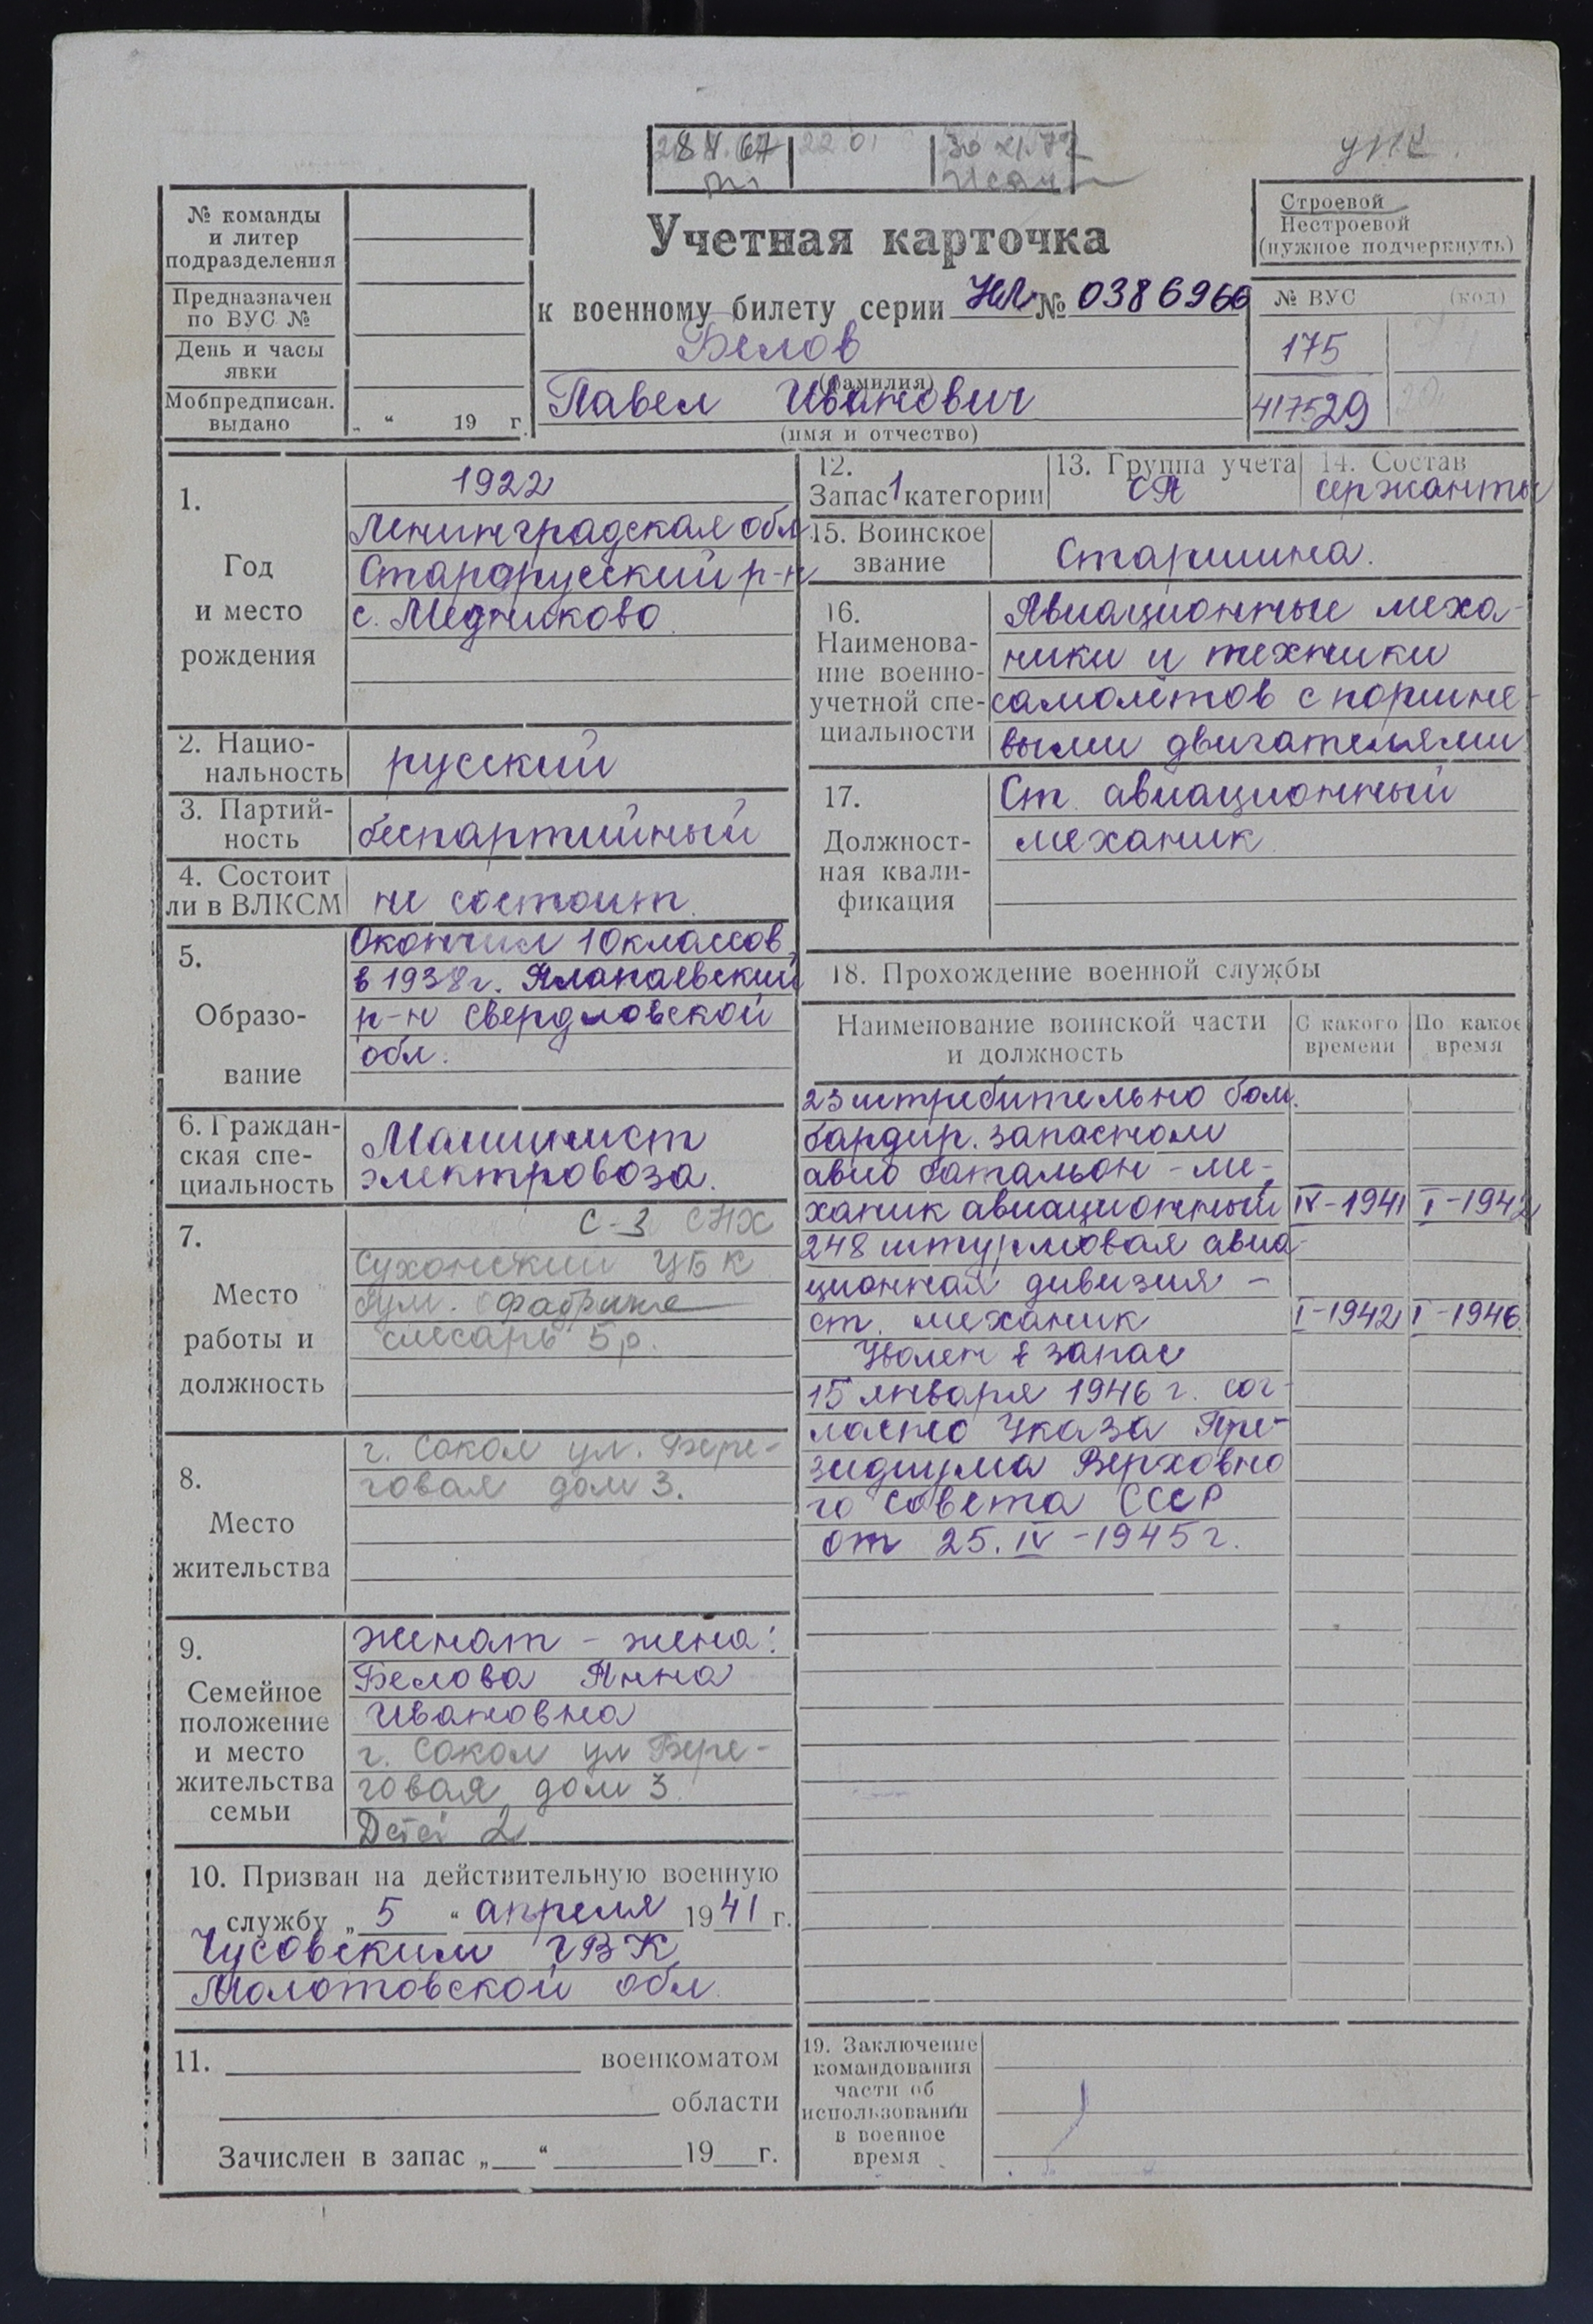 28 V 67 22 01 30 XI.77
УПК.
№ команды
и литер
подразделения
Предназначен
по ВУС №
День и часы
явки
Мобпредписан.
выдано
„ “ 19 г.
Учетная карточка
к военному билету серии НЛ № 0386966
Белов
(фамилия)
Павел Иванович
(имя и отчество)
Строевой
Нестроевой
(нужное подчеркнуть)
№ ВУС (код)
175
417529
1.
Год
и место
рождения
1922
Ленинградская обл
Старорусский р-н
с. Медниково
2. Нацио-
нальность
русский
3. Партий-
ность
беспартийный
4. Состоит
ли в ВЛКСМ
не состоит
5.
Образо-
вание
Окончил 10 классов
в 1938 г. Алапаевский
р-н Свердловской
обл.
6. Граждан-
ская спе-
циальность
Машинист
электровоза.
7.
Место
работы и
должность
С-3 СНХ
Сухонский ЦБК
бум. фабрика
слесарь 5 р.
8.
Место
жительства
г. Сокол ул. Бере-
говая дом 3.
9.
Семейное
положение
и место
жительства
семьи
женат - жена:
Белова Анна
Ивановна
г. Сокол ул Бере-
говая дом 3.
Детей 2
10. Призван на действительную военную
службу „ 5 “ апреля 1941 г.
Чусовским ГВК
Молотовской обл.
11. военкоматом
области
Зачислен в запас „ “ 19 г.
12.
Запас 1 категории
13. Группа учета
СА
14. Состав
сержанты
15. Воинское
звание
Старшина.
16.
Наименова-
ние военно-
учетной спе-
циальности
Авиационные меха-
ники и техники
самолётов с поршне-
выми двигателями
17.
Должност-
ная квали-
фикация
Ст. авиационный
механик
18. Прохождение военной службы
Наименование воинской части
и должность
С какого
времени
По какое
время
23 истребительно бом.
бардир. запасном
авио батальон - ме-
ханик авиационный IV-1941 I-1942
248 штурмовая авиа-
ционная дивизия -
ст. механик I-1942 I-1946.
Уволен в запас
15 января 1946 г. сог-
ласно Указа Пре-
зидиума Верховно
го Совета СССР
от 25. IV -1945 г.
19. Заключение
командования
части об
использовании
в военное
время